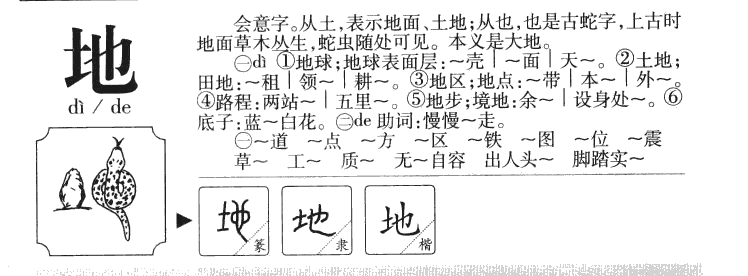 地
dì / de
会意字。从土,表示地面、土地;从也,也是古蛇字,上古时
地面草木丛生,蛇虫随处可见。本义是大地。
㊀dì ①地球;地球表面层:～壳｜～面｜天～。②土地;
田地:～租｜领～｜耕～。③地区;地点:～带｜本～｜外～。
④路程:两站～｜五里～。⑤地步;境地:余～｜设身处～。⑥
底子:蓝～白花。㊁de 助词:慢慢～走。
㊀～道 ～点 ～方 ～区 ～铁 ～图 ～位 ～震
草～ 工～ 质～ 无～自容 出人头～ 脚踏实～
地 篆 地 隶 地 楷